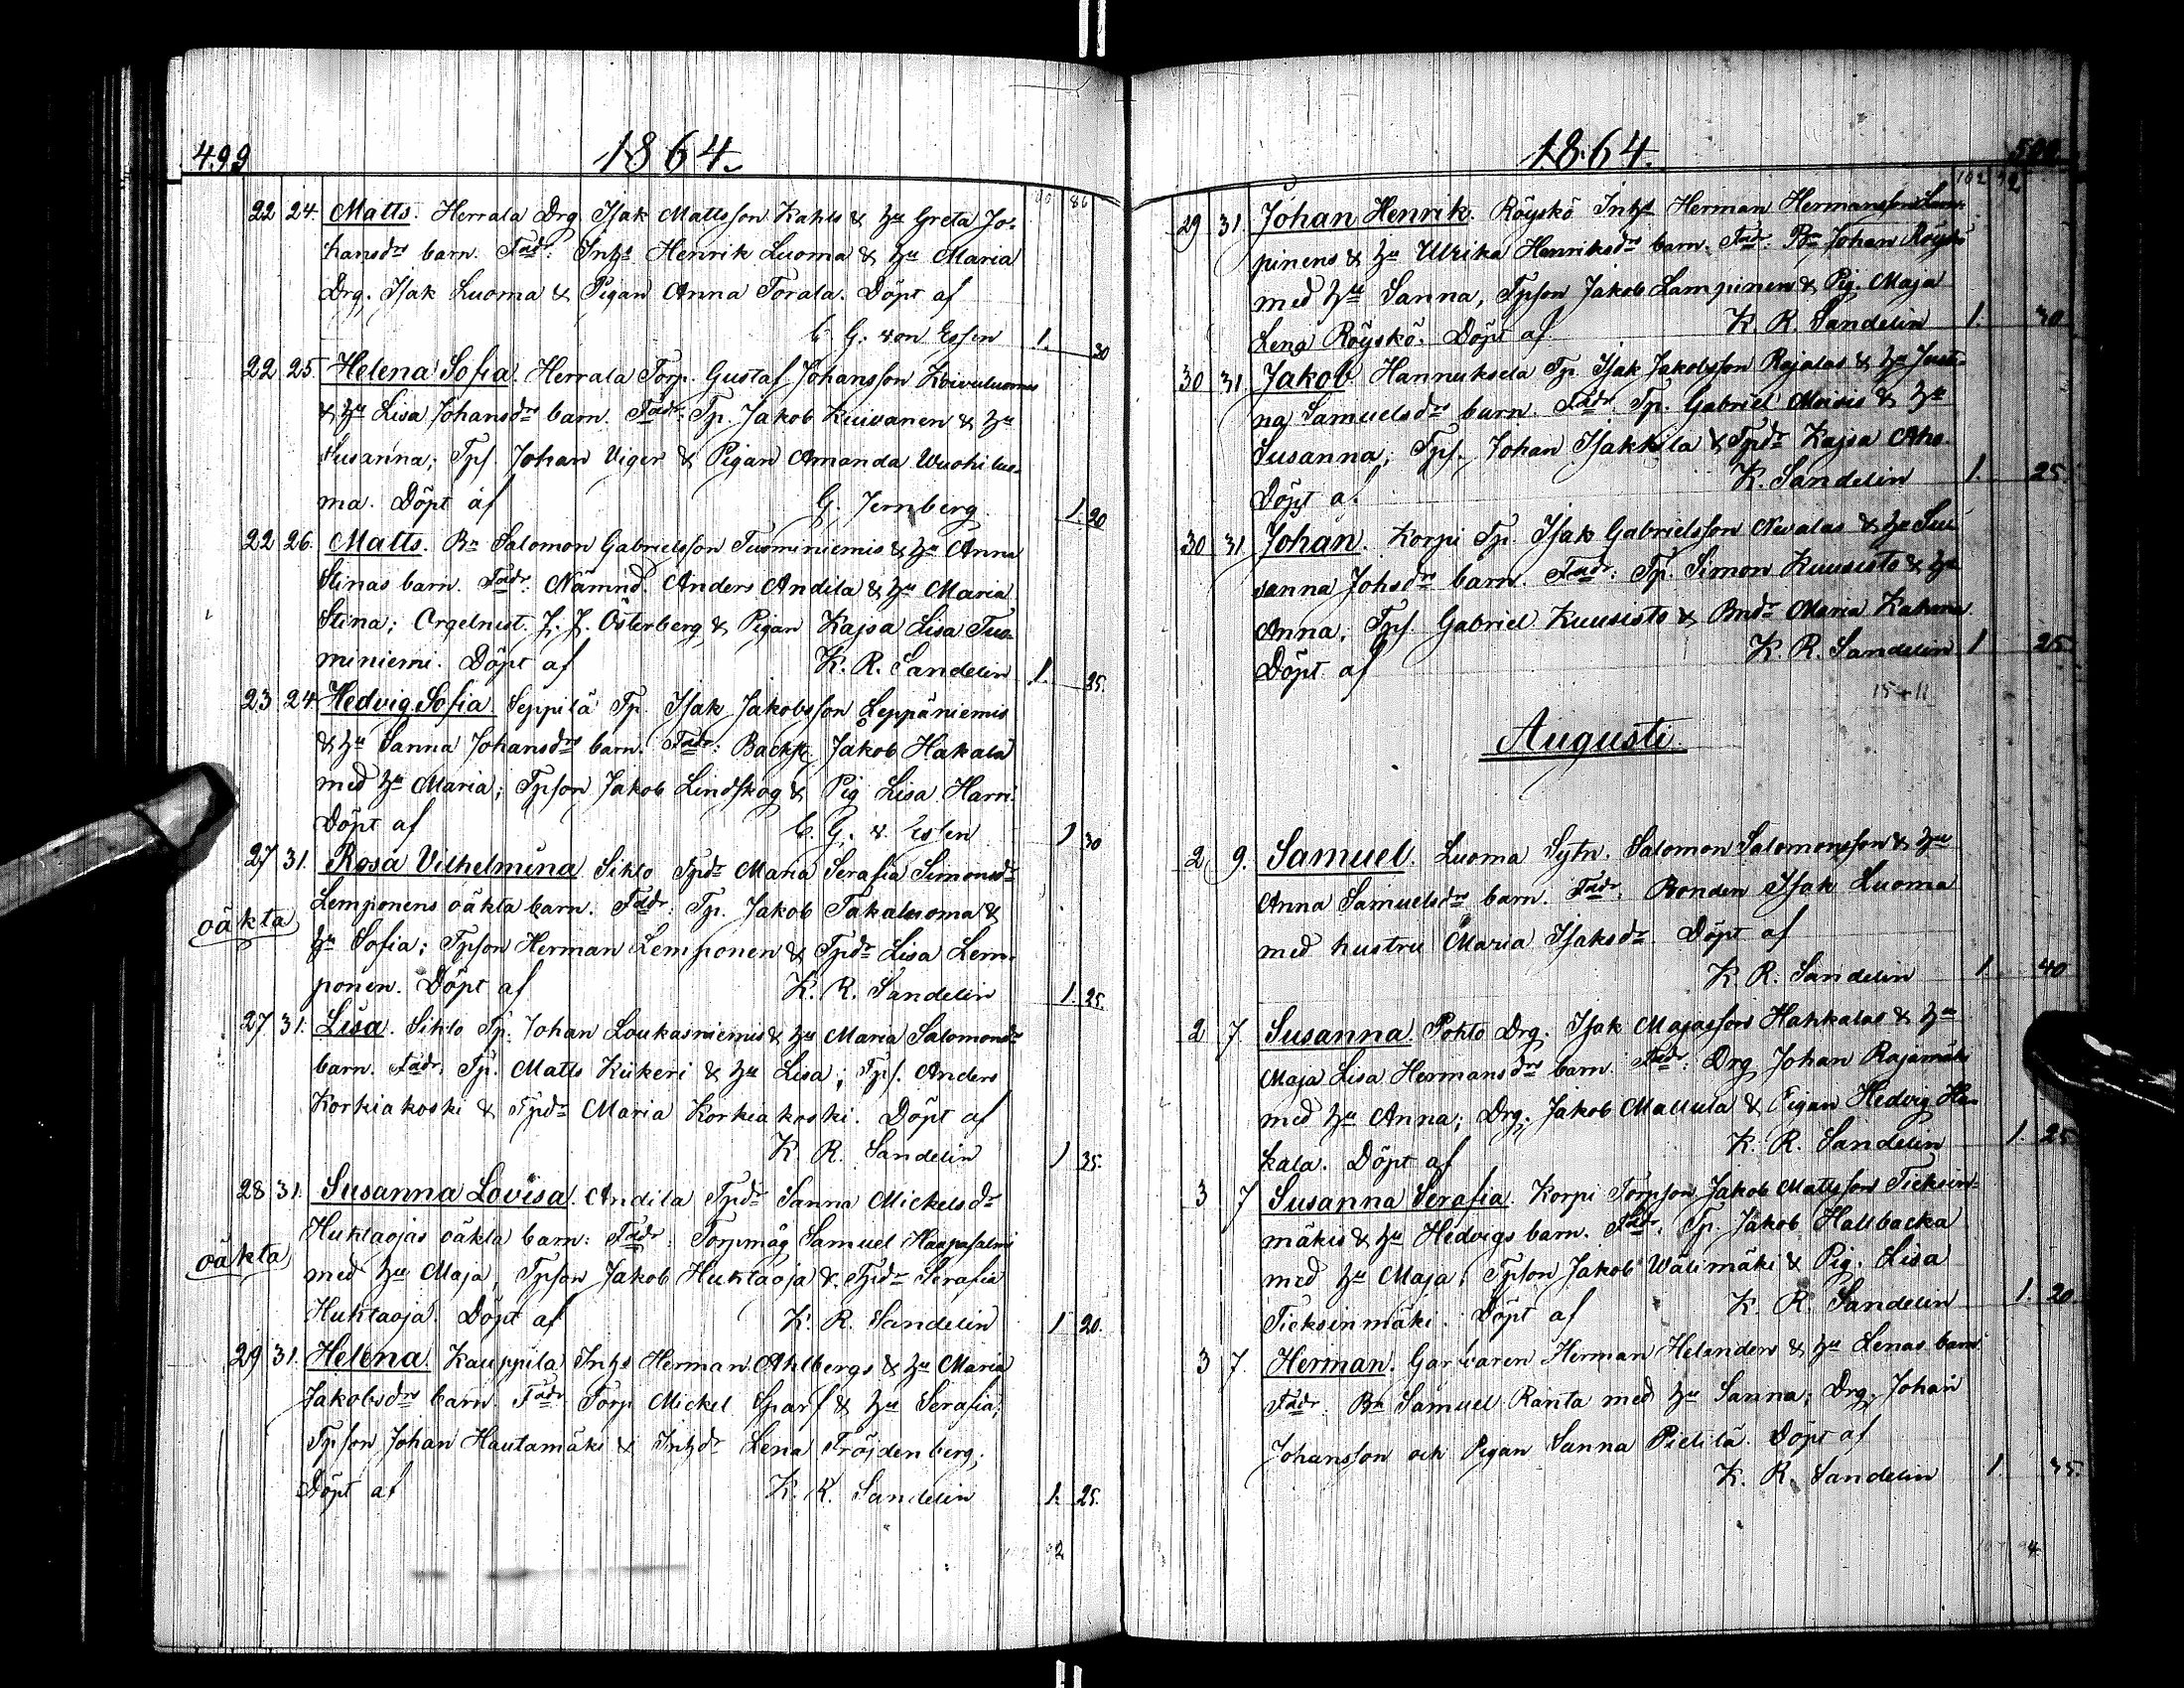 499
1864.
90 86
22 24. Matts. Herrala Drg Isak Mattsson Kahls & hu Greta Jo-
hansdrs barn. Fadr: Inhs Henrik Luoma & hu Maria
Drg. Isak Luoma & Pigan Anna Torala. Döpt af
C. G. von Essen 1. 30
22 25. Helena Sofia. Herrala Torp. Gustaf Johansson Koivuluomas
& hu Lisa Johansdrs barn. Fadr: Tp. Jakob Kuivanen & hu
Susanna; Tps. Johan Viger & Pigan Amanda Wuohiluo-
ma. Döpt af G. Jernberg 1. 20
22 26. Matts. Bn Salomon Gabrielsson Tuominiemis & hu Anna
Stinas barn. Fadr: Nämnd. Anders Andila & hu Maria
Stina; Orgelnist. J. J. Österberg & Pigan Kajsa Lisa Tuo-
miniemi. Döpt af K. R. Sandelin 1. 25.
23 24. Hedvig Sofia. Seppilä Tp. Isak Jakobsson Leppäniemis
& hu Sanna Johansdrs barn. Fadr: Backst. Jakob Hakala
med hu Maria; Tpson Jakob Lindskog & Pig Lisa Harri.
Döpt af C. G. v. Essen 1 30
27 31. Rosa Vilhelmina Sihto Tpdr Maria Serafia Simonsdr
oäkta
Lemponens oäkta barn. Fadr: Tp. Jakob Takaluoma &
hu Sofia; Tpson Herman Lemponen & Tpdr Lisa Lem-
ponen. Döpt af K. R. Sandelin 1. 25.
27 31. Lisa. Sihto Tp. Johan Loukasniemis & hu Maria Salomonsdr
barn. Fadr. Tp. Matts Kükeri & hu Lisa; Tps. Anders
Korkiakoski & Tpdr Maria Korkiakoski. Döpt af
K. R. Sandelin 1 35.
28 31. Susanna Lovisa. Andila Tpdr Sanna Mickelsdr
Huhtaojas oäkta barn: Fadr: Torpmåg Samuel Haapasalmi
oäkta
med hu Maja, Tpson Jakob Huhtaoja & Tpdr Serafia
Huhtaoja. Döpt af K. R. Sandelin 1 20.
29 31. Helena. Kauppila Inhs Herman Ahlbergs & hu Maria
Jakobsdrs barn. Fadr Torp Mickel Sparf & hu Serafia;
Tpson Johan Hautamäki & Inhdr Lena Fröjdenberg;
Döpt af K. R. Sandelin 1. 25.
92
1864.
500
102 92
29 31. Johan Henrik. Röyskö Inhs Herman Hermansson Lam-
pinens & hu Ulrika Henriksdrs barn. Fadr: Bn Johan Röyskö
med hu Sanna, Tpson Jakob Lampinen & Pig. Maja
Lena Röyskö. Döpt af K. R. Sandelin 1. 30
30 31. Jakob Hannuksela Tp. Isak Jakobsson Rajalas & hu Justi-
na Samuelsdrs barn. Fadr. Tp. Gabriel & hu
Susanna; Tps. Johan Isakkila & Tpdr Kajsa Aho.
Döpt af K. Sandelin 1. 25.
30 31 Johan. Korpi Tp. Isak Gabrielsson Nevalas & hu Su-
sanna Johsdrs barn. Fadr: Tp. Simon Kuusisto & hu
Anna; Tps. Gabriel Kuusisto & Bndr Maria
Döpt af K. R. Sandelin 1 25
15+11
Augusti.
2 9. Samuel. Luoma Sytn. Salomon Salomonsson & hu
Anna Samuelsdrs barn. Fadr: Bonden Isak Luoma
med hustru Maria Isaksdr. Döpt af
K. R. Sandelin 1. 40
2 7. Susanna. Pohto Drg. Isak Majasson Hahkalas & hu
Maja Lisa Hermansdrs barn. Fadr: Drg Johan Rajamäki
med hu Anna; Drg. Jakob Mattula & Pigan Hedvig Ha-
kala. Döpt af K. R. Sandelin 1. 25
3 7 Susanna Serafia. Korpi Torpson Jakob Mattsson Tieksin-
mäkis & hu Hedvigs barn. Fadr. Tp. Jakob Hallbacka
med hu Maja; Tpson Jakob Wälimäki & Pig. Lisa
Tieksinmäki. Döpt af K. R. Sandelin 1. 20
3 7. Herman. Garfvaren Herman Helanders & hu Lenas barn.
Fadr. Bn Samuel Ranta med hu Sanna; Drg. Johan
Johansson och Pigan Sanna Pietilä. Döpt af
K. R. Sandelin 1. 35.
107 94.